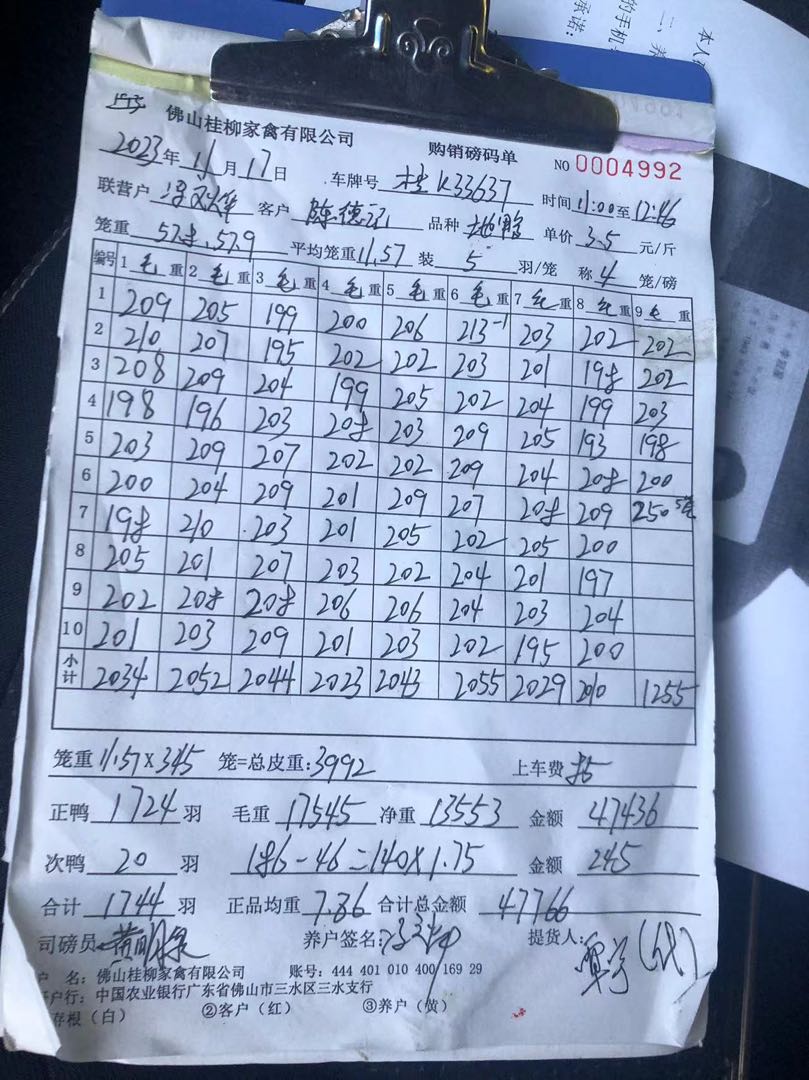 佛山桂柳家禽有限公司 购销磅码单 NO 0004992
2023年 11月17日 车牌号 桂K33637 时间 11:00至12:46
联营户 客户 陈德 品种 单价 3.5 元/斤
笼重 57.8.57.9 平均笼重11.57 装 5 羽/笼 称 4 笼/磅
编号 1毛重 2毛重 3毛重 4毛重 5毛重 6毛重 7毛重 8毛重 9毛重
1 209 205 199 200 206 213-1 203 202 202
2 210 207 195 202 202 203 201 198 202
3 208 209 204 199 205 202 204 199 203
4 198 196 203 208 203 209 205 193 198
5 203 209 207 202 202 209 204 208 200
6 200 204 209 201 209 207 208 209 250 5笼
7 198 210 203 201 205 202 205 200
8 205 201 207 203 202 204 201 197
9 202 208 208 206 206 204 203 204
10 201 203 209 201 203 202 195 200
小计 2034 2052 2044 2023 2043 2055 2029 2010 1255
笼重 11.57×345 笼=总皮重:3992 上车费 85
正鸭 1724 羽 毛重 17545 净重 13553 金额 47436
次鸭 20 羽 186-46=140×1.75 金额 245
合计 1744 羽 正品均重 7.86 合计总金额 47766
司磅员 黄明 养户签名: 提货人: 覃宇(代)
户 名: 佛山桂柳家禽有限公司 账号: 444 401 010 400 169 29
户行: 中国农业银行广东省佛山市三水区三水支行
存根(白) ②客户(红) ③养户(黄)
本人
的手机
二、养
承诺: